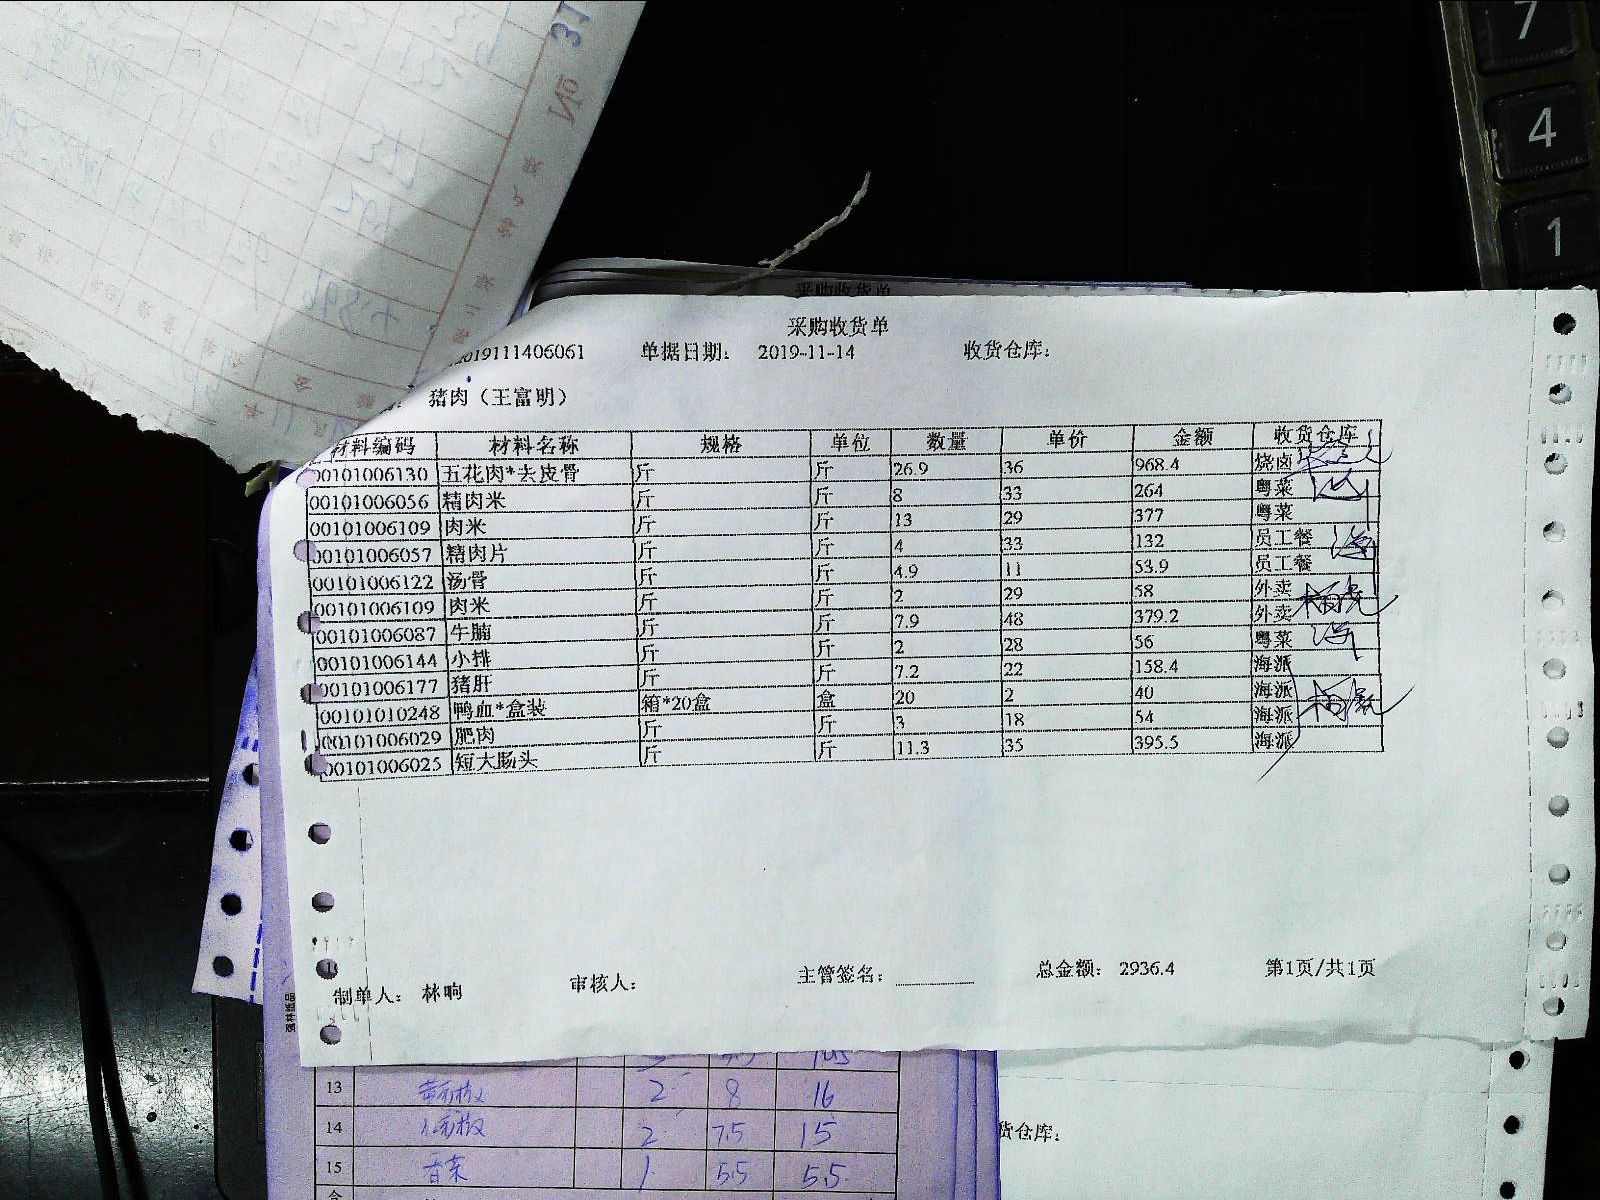 No 31
7
4
1
采购收货单
采购收货单
2019111406061 单据日期: 2019-11-14 收货仓库:
猪肉（王富明）
材料编码 材料名称 规格 单位 数量 单价 金额 收货仓库
00101006130 五花肉*去皮骨 斤 斤 26.9 36 968.4 烧卤
00101006056 精肉米 斤 斤 8 33 264 粤菜
00101006109 肉米 斤 斤 13 29 377 粤菜
00101006057 精肉片 斤 斤 4 33 132 员工餐
00101006122 汤骨 斤 斤 4.9 11 53.9 员工餐
00101006109 肉米 斤 斤 2 29 58 外卖
00101006087 牛腩 斤 斤 7.9 48 379.2 外卖
00101006144 小排 斤 斤 2 28 56 粤菜
00101006177 猪肝 斤 斤 7.2 22 158.4 海派
00101010248 鸭血*盒装 箱*20盒 盒 20 2 40 海派
00101006029 肥肉 斤 斤 3 18 54 海派
00101006025 短大肠头 斤 斤 11.3 35 395.5 海派
制单人: 林响 审核人: 主管签名: 总金额: 2936.4 第1页/共1页
13 2 8 16
14 2 7.5 15
15 香菜 1 5.5 5.5
货仓库: